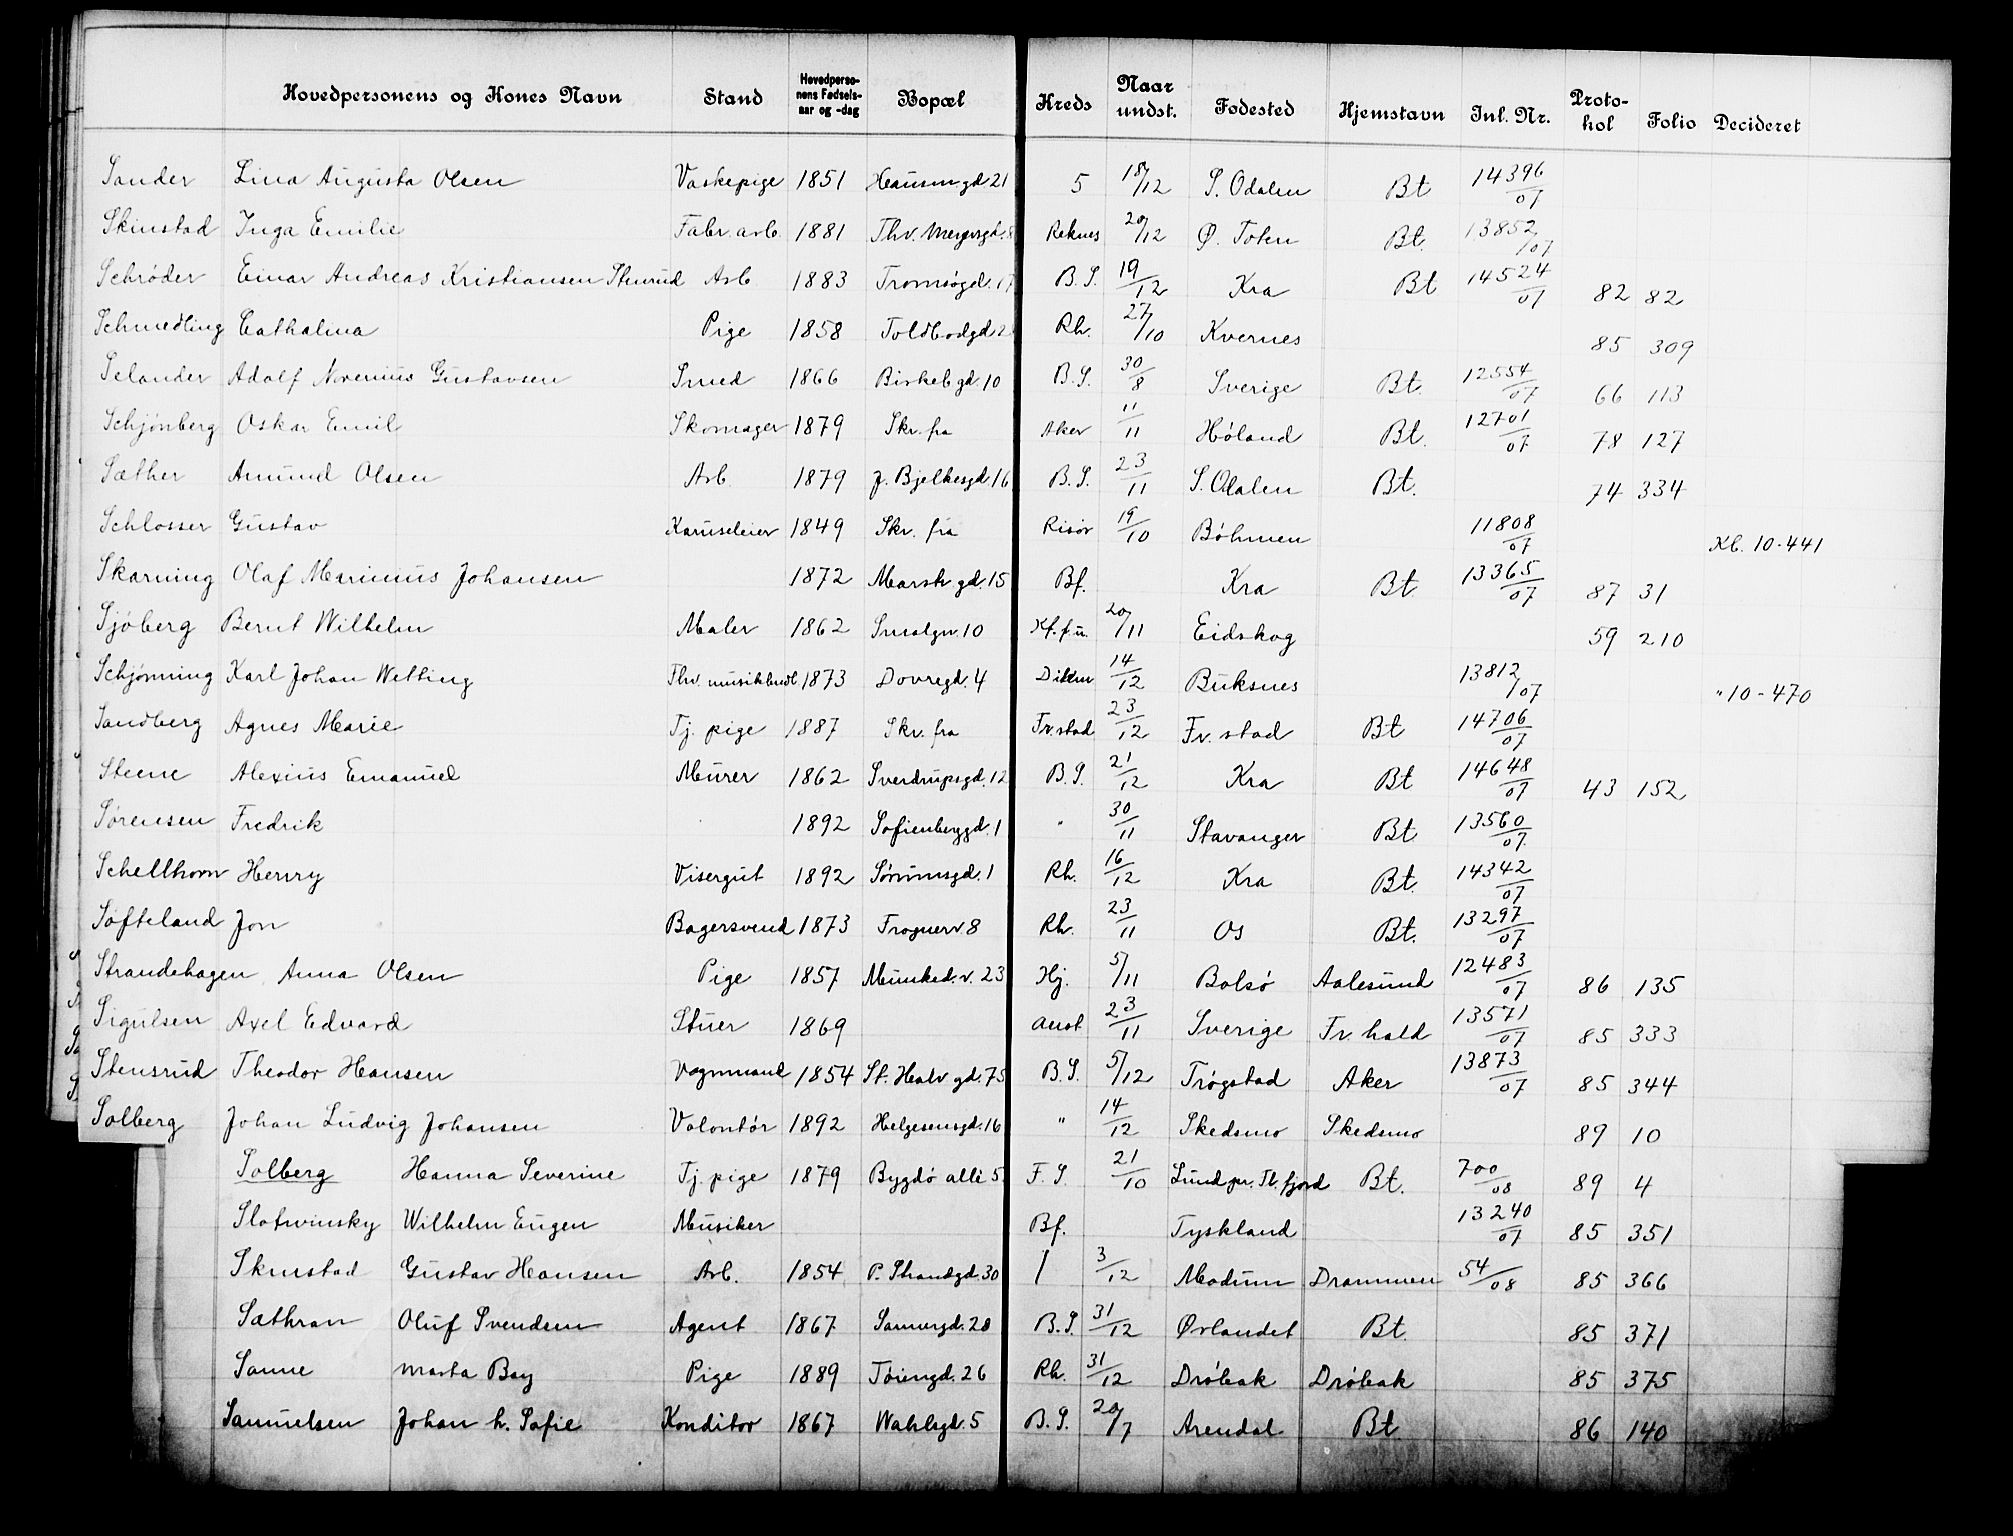 Hovedpersonens og Kones Navn Stand Hovedperso-nens Fødsels-aar og -dag Bopæl Kreds Naar undst. Fødested Hjemstavn Inl. Nr. Proto-kol Folio Decideret
Sander Lina Augusta Olsen Vaskepige 1851 Hausm.gd 21 5 18/12 S. Odalen Bt 14396/07
Skinstad Inga Emilie Fabr. arb. 1881 Thv. Meyersgd. 8 Reknes 20/12 Ø. Toten Bt. 13852/07
Schrøder Einar Andreas Kristiansen Stenrud Arb. 1883 Tromsøgd. 17 B.S. 19/12 Kra Bt 14524/07 82 82
Schmedling Cathalina Pige 1858 Toldbodgd 2 Rh. 27/10 Kvernes 85 309
Selander Adolf Noverius Gustavsen Smed 1866 Birkeb gd. 10 B.S. 30/8 Sverige Bt. 12554/07 66 113
Schjønberg Oskar Emil Skomager 1879 Skr. fra Aker 11/11 Høland Bt. 12701/07 78 127
Sæther Amund Olsen Arb. 1879 J. Bjelkesgd 16 B.S. 23/11 S. Odalen Bt. 74 334
Schlosser Gustav Karuseleier 1849 Skr. fra Risør 19/10 Bøhmen 11808/07 Kb. 10-441
Skarning Olaf Marinius Johansen 1872 Marsk gd. 15 Bf. Kra Bt 13365/07 87 31
Sjøberg Bernt Wilhelm Maler 1862 Smalgn. 10 Kf.f.u. 20/11 Eidskog 59 210
Schjønning Karl Johan Wetting Thv. musikhndl. 1873 Dovregd. 4 14/12 Buksnes 13812/07 " 10-470
Sandberg Agnes Marie Tj. pige 1887 Skr. fra Fr.stad 23/12 Fr. stad Bt 14706/07
Steene Alexius Emanuel Murer 1862 Sverdrupsgd. 12 B.S. 21/12 Kra Bt 14648/07 43 152
Sørensen Fredrik 1892 Sofienberggd. 1 " 30/11 Stavanger Bt. 13560/07
Schellhorn Henry Visergut 1892 Sørumsgd. 1 Rh. 16/12 Kra Bt. 14342/07
Søfteland Jon Bagersvend 1873 Frognerv. 8 Rh. 23/11 Os Bt. 13297/07
Strandehagen Anna Olsen Pige 1857 Munked. v. 23 Hj. 5/11 Bolsø Aalesund 12483/07 86 135
Sigulsen Axel Edvard Stuer 1869 Aust 23/11 Sverige Fr. hald 13571/07 85 333
Stensrud Theodor Hansen Vognmand 1854 St. Halv gd. 75 B.S. 5/12 Trøgstad Aker 13873/07 85 344
Solberg Johan Ludvig Johansen Volontør 1892 Helgesensgd. 16 " 14/12 Skedsmo Skedsmo 89 10
Solberg Hanna Severine Tj. pige 1879 Bygdø allè 5 F.S. 21/10 Lund pr. Th. fjord Bt. 700/08 89 4
Slotwinsky Wilhelm Eugen Musiker Bf. Tyskland 13240/07 85 351
Skurstad Gustav Hansen Arb. 1854 P. Strandgd. 30 1 3/12 Modum Drammen 54/08 85 366
Sæthran Oluf Svendsen Agent 1867 Sannergd. 28 B.S. 31/12 Ørlandet Bt. 85 371
Sanne Marta Bay Pige 1889 Tøiengd. 26 Rh. 31/12 Drøbak Drøbak 85 375
Samuelsen Johan h. Sofie Konditor 1867 Wahlsgd. 5 B.S. 20/7 Arendal Bt 86 140